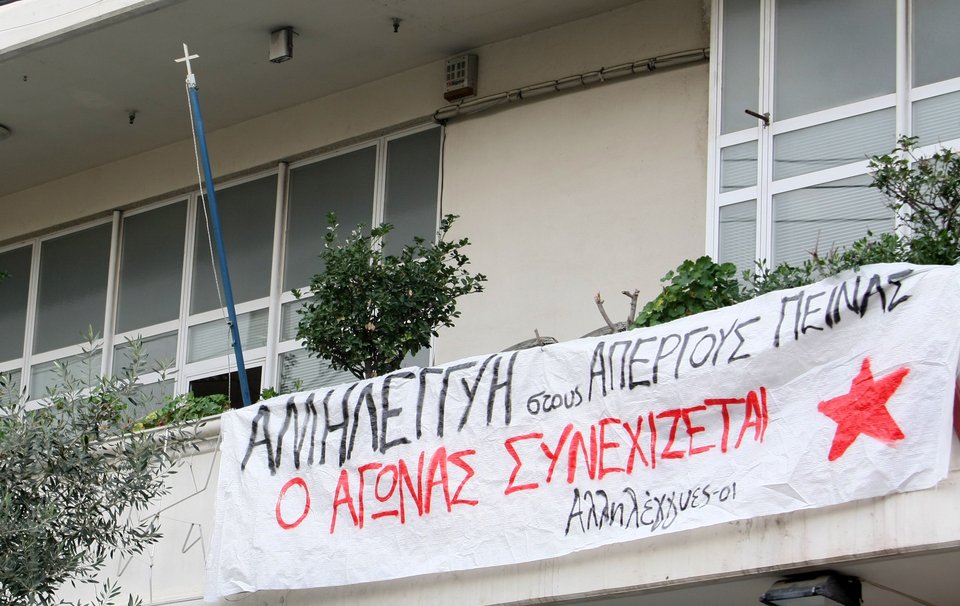 ΑΛΛΗΛΕΓΓΥΗ στους ΑΠΕΡΓΟΥΣ ΠΕΙΝΑΣ
Ο ΑΓΩΝΑΣ ΣΥΝΕΧΙΖΕΤΑΙ
Αλληλέγγυες-οι